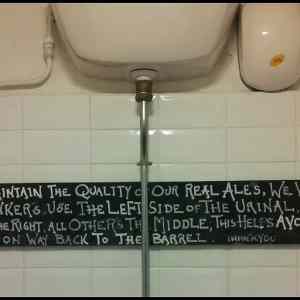 INTAIN THE QUALITY OF OUR REAL ALES, WE
NKERS USE THE LEFT SIDE OF THE URINAL,
HE RIGHT. ALL OTHERS THE MIDDLE, THIS HELPS AVO
ON WAY BACK TO THE BARREL.